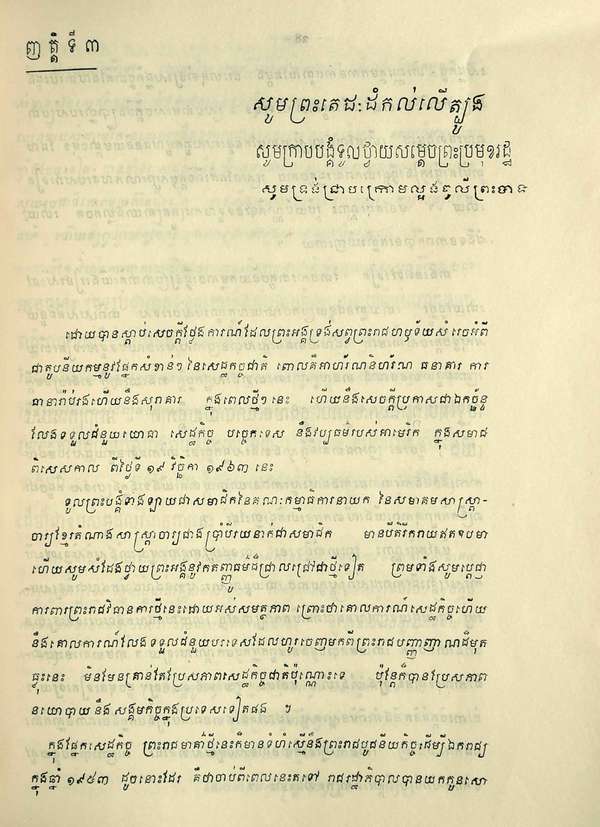 ញត្តិទី ៣
សូមព្រះតេជះដំកល់លើត្បូង
សូមក្រាបបង្គំទូលថ្វាយសម្តេចព្រះប្រមុខរដ្ឋ
សូមទ្រង់ជ្រាបក្រោមល្អងធូលីព្រះបាទ
ដោយបានស្តាប់សេចក្តីថ្លែងការណ៍ដែលព្រះអង្គទ្រង់សព្វព្រះរាជហឫទ័យសំរេចអំពី
ជាតូបនីយកម្មនូវផ្នែកសំខាន់ៗ នៃសេដ្ឋកិច្ចជាតិ ពោលគឺអាហរ័ណនិហរ័ណ ធនាគារ ការ
ធានារ៉ាប់រងហើយនឹងសុរាគារ ក្នុងពេលថ្មីៗនេះ ហើយនឹងសេចក្តីប្រកាសជាឯកច្ឆ័ន្ទ
លែងទទួលជំនួយយោធា សេដ្ឋកិច្ច បច្ចេកទេស នឹងវប្បធម៌របស់អាមេរិក ក្នុងសមាជ
ពិសេសកាល ពីថ្ងៃទី ១៩ វិច្ឆិកា ១៩៦៣ នេះ
ទូលព្រះបង្គំទាំងឡាយជាសមាជិកនៃគណៈកម្មាធិការនាយក នៃសមាគមសាស្ត្រា-
ចារ្យខ្មែរតំណាងសាស្ត្រាចារ្យជាងប្រាំបីរយនាក់ជាសមាជិក មានបីតិរីករាយឥតឧបមា
ហើយសូមសំដែងថ្វាយព្រះអង្គនូវកតញ្ញូធម៌ដ៏ជ្រាលជ្រៅជាថ្មីទៀត ព្រមទាំងសូមប្តេជ្ញា
ការពារព្រះរាជវិធានការថ្មីនេះដោយអស់សមត្ថភាព ព្រោះថាគោលការណ៍សេដ្ឋកិច្ចហើយ
នឹងគោលការណ៍លែងទទួលជំនួយបរទេសដែលហូរចេញមកពីព្រះរាជបញ្ញាញាណដ៏មុត
ធ្លុះនេះ មិនមែនគ្រាន់តែប្រែសភាពសេដ្ឋកិច្ចជាតិប៉ុណ្ណោះទេ ប៉ុន្តែក៏បានប្រែសភាព
នយោបាយនឹងសង្គមកិច្ចក្នុងប្រទេសទៀតផង ។
ក្នុងផ្នែកសេដ្ឋកិច្ច ព្រះរាជមាគ៌ាថ្មីនេះក៏មានទំហំស្មើនឹងព្រះរាជបូជនីយកិច្ចដើម្បីឯករាជ្យ
ក្នុងឆ្នាំ ១៩៥៣ ដូចនោះដែរ គឺថាចាប់ពីពេលនេះតទៅ រាជរដ្ឋាភិបាលបានយកកូនសោ